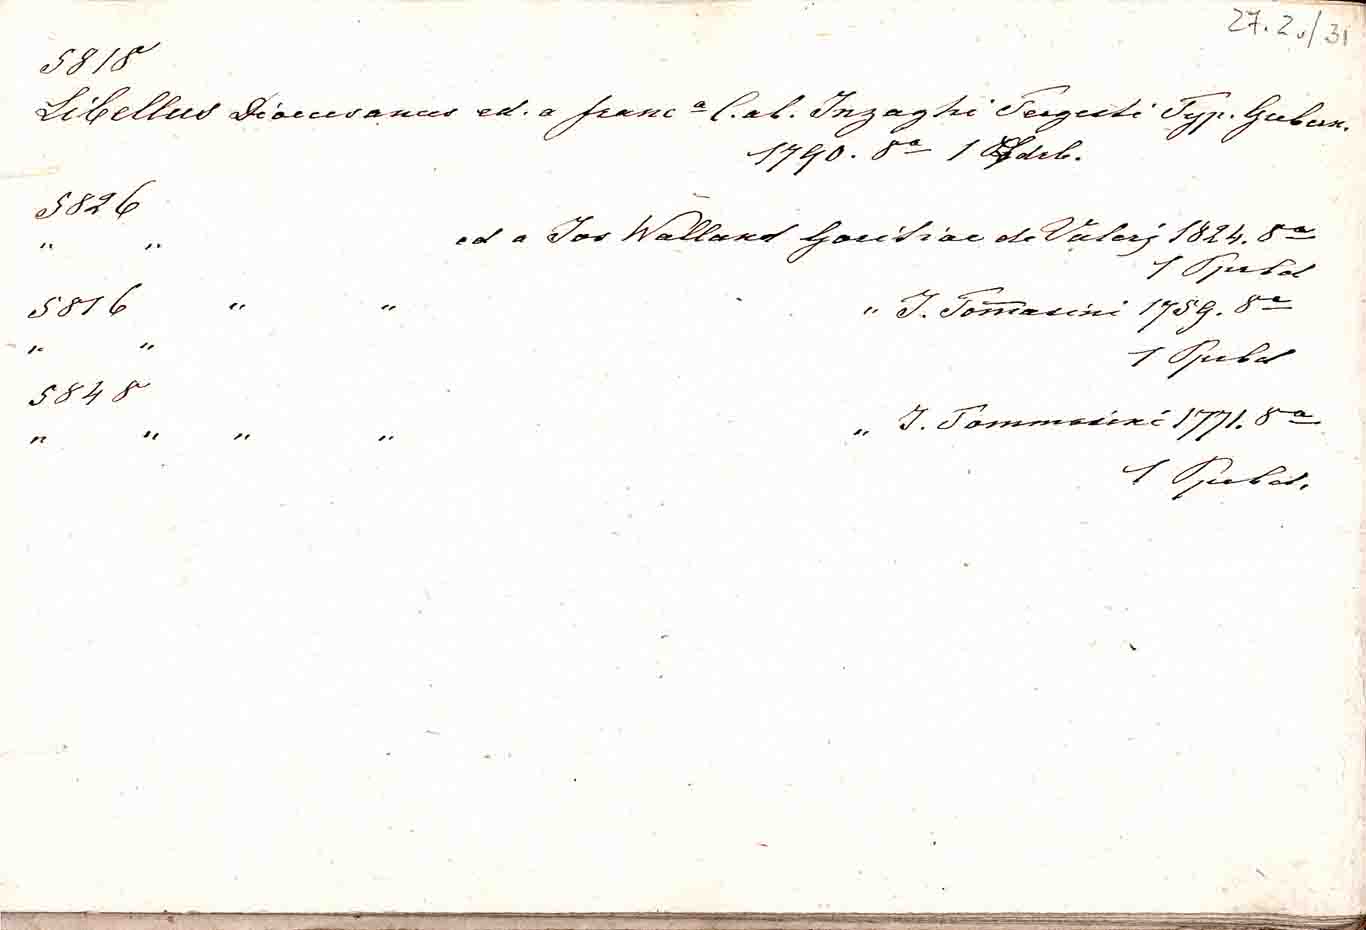 27. 2./31
5818
Libellus Dioecesanus ed. a franc a Cab. Inzaghi Tergesti Typ. Gubern.
1790. 8a 1
5826
" " ed a Jos Walland Goritiae de Valerj 1824. 8a
1 Pprbd
5816 " " " J. Tom̅asini 1759. 8a
" "
1 Pprbd
5848
" " " " " J. Tommasini 1771. 8a
1 Pprbd.